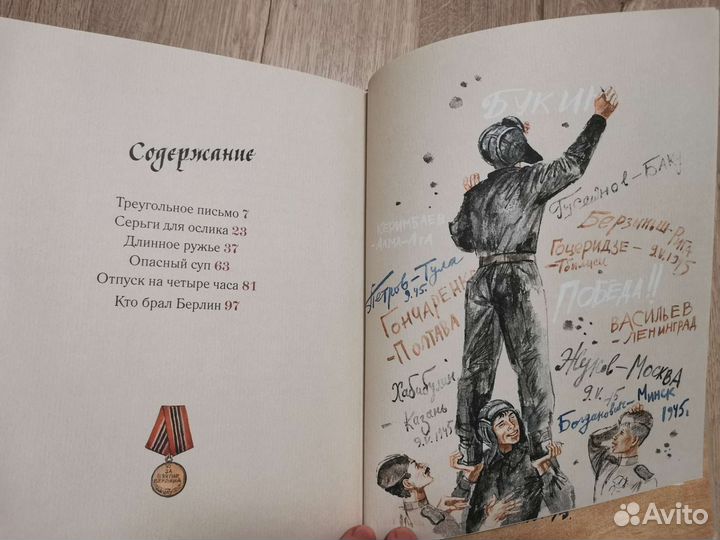 Содержание
Треугольное письмо 7
Серьги для ослика 23
Длинное ружье 37
Опасный суп 63
Отпуск на четыре часа 81
Кто брал Берлин 97
ЗА
ВЗЯТИЕ
БЕРЛИНА
БУКИН
Гусейнов-Баку
КЕРИМБАЕВ
-АЛМА-АТА
Берзиньш-Рига
Гоцеридзе-
-Тбилиси
9.V.1945
Петров-Тула
9.45.
ПОБЕДА!!
ГОНЧАРЕНКО
-ПОЛТАВА
ВАСИЛЬЕВ
-ЛЕНИНГРАД
Жуков-Москва
9.V.45
Хабибулин
-Казань
9.V.1945
Богданович-Минск
1945г.
Avito